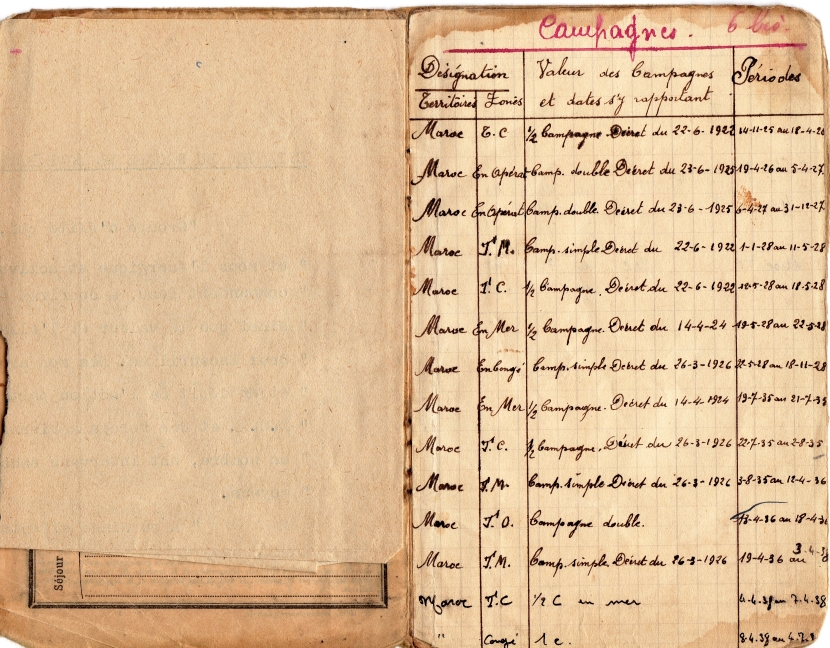 Campagnes. 6 bis.
Désignation Valeur des Campagnes Périodes
Territoires Zones et dates s'y rapportant
Maroc T.C 1/2 Campagne Décret du 22-6-1922 14-11-25 au 18-4-26
Maroc En Opérat Camp. double Décret du 23-6-1925 19-4-26 au 5-4-27
Maroc En Opérat Camp. double Décret du 23-6-1925 6-4-27 au 31-12-27
Maroc T.M. Camp. simple Décret du 22-6-1922 1-1-28 au 11-5-28
Maroc T.C. 1/2 Campagne. Décret du 22-6-1922 12-5-28 au 18-5-28
Maroc En Mer 1/2 Campagne. Décret du 14-4-24 19-5-28 au 22-5-28
Maroc En Congé Camp. simple Décret du 26-3-1926 22-5-28 au 18-11-28
Maroc En Mer 1/2 Campagne. Décret du 14-4-1924 19-7-35 au 21-7-35
Maroc T.C. 1/2 Campagne. Décret du 26-3-1926 22-7-35 au 2-8-35
Maroc T.M. Camp. simple Décret du 26-3-1926 3-8-35 au 12-4-36
Maroc T.O. Campagne double. 13-4-36 au 18-4-36
Maroc T.M. Camp. simple. Décret du 26-3-1926 19-4-36 au 3-4-38
Maroc T.C 1/2 C en mer 4-4-38 au 7-4-38
" Congé 1 c. 8-4-38 au
Séjour